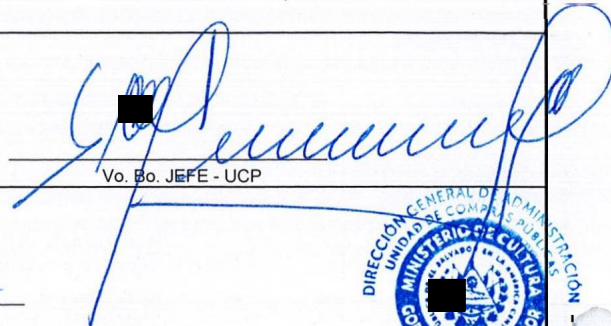 Vo. Bo. JEFE - UCP
DIRECCIÓN GENERAL DE ADMINISTRACIÓN
UNIDAD DE COMPRAS PÚBLICAS
MINISTERIO DE CULTURA
SALVADOR EN LA AMERICA